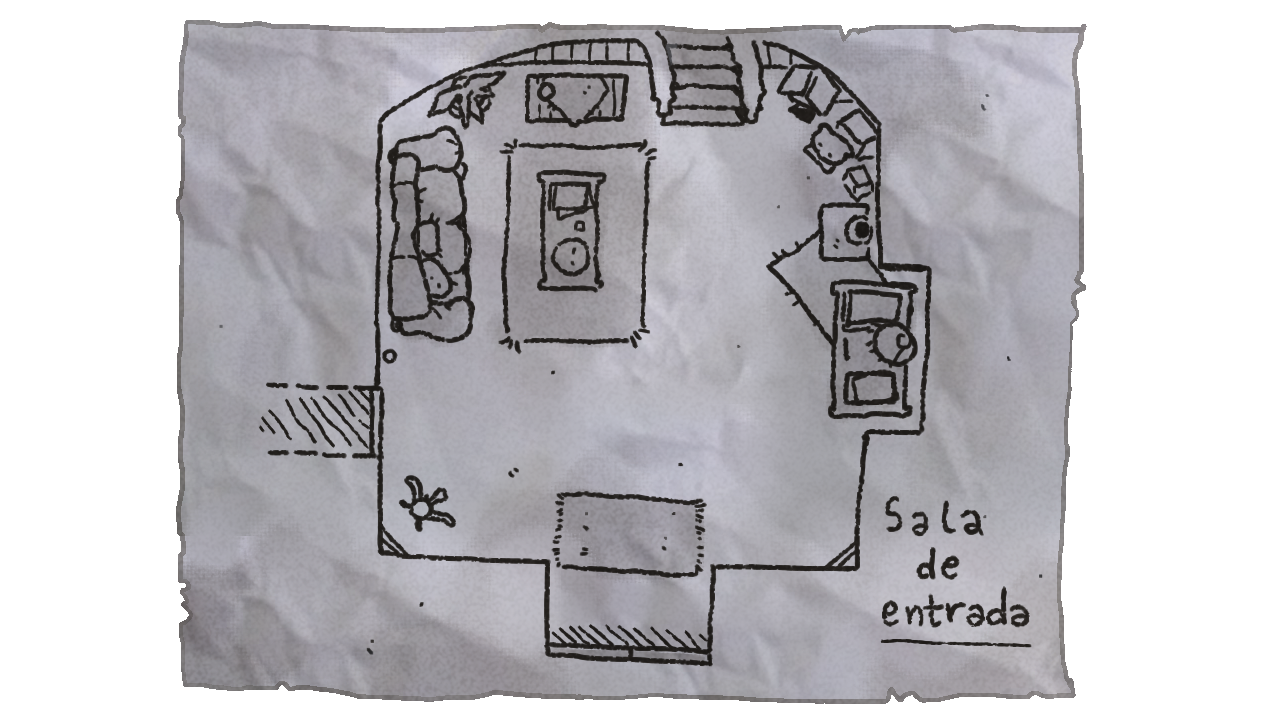 Sala
de
entrada